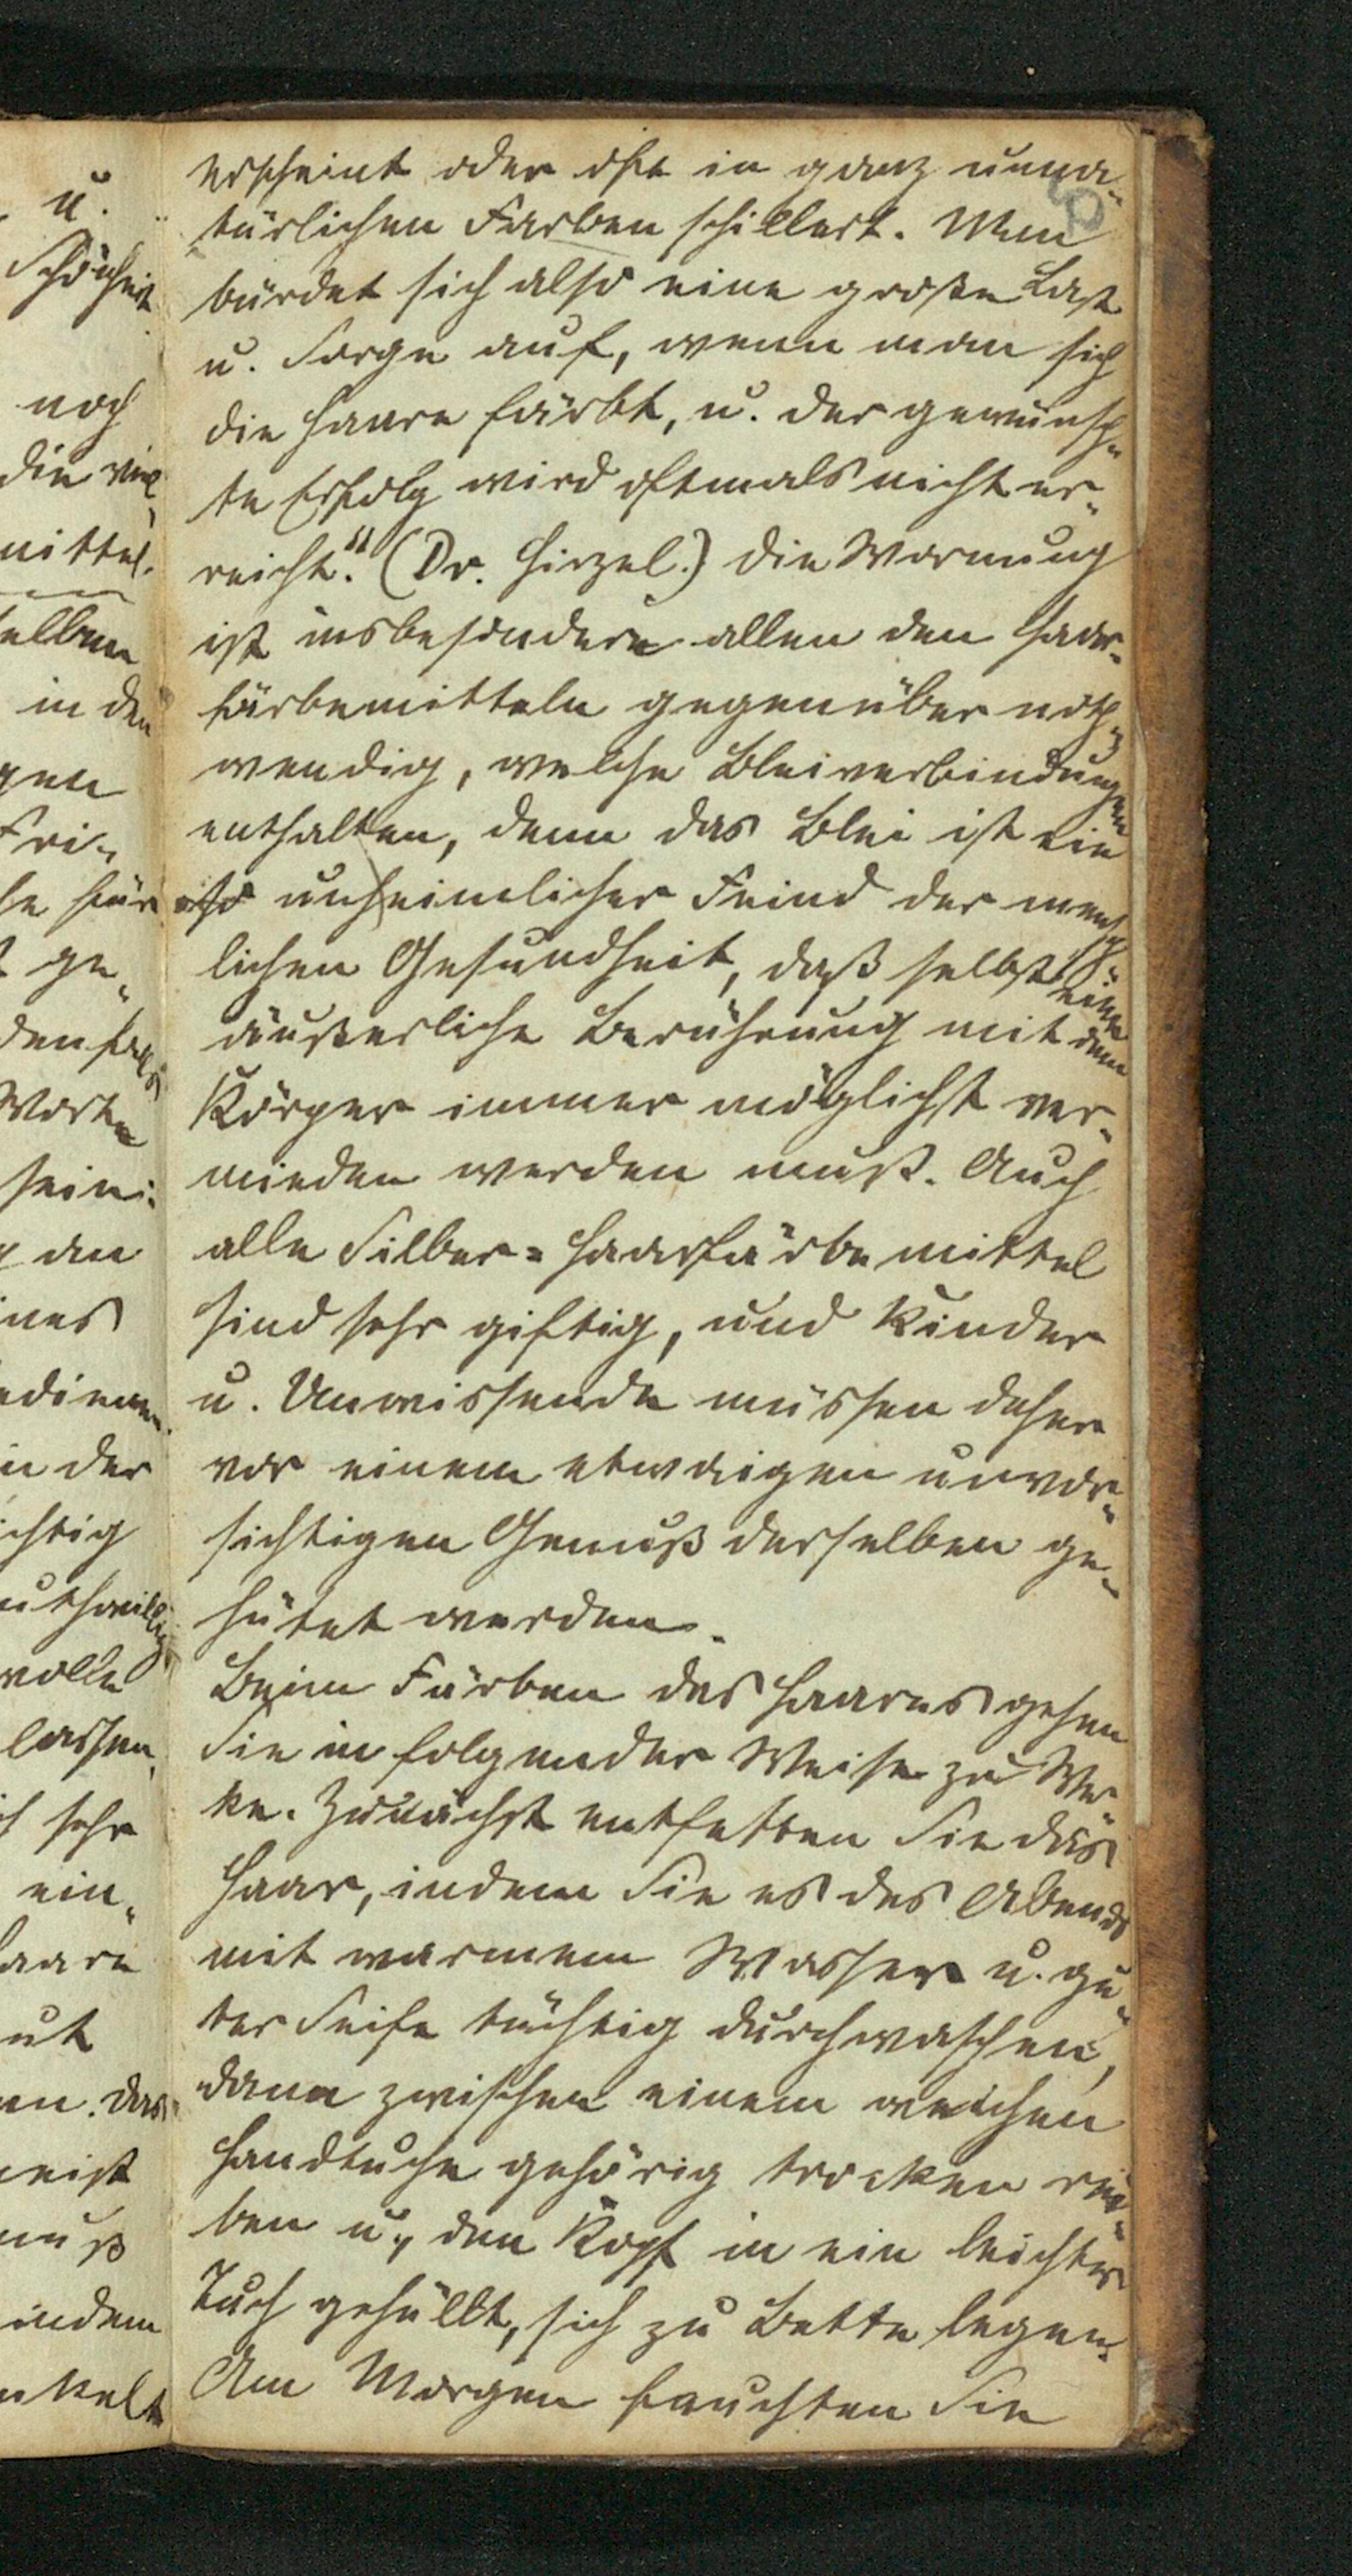 erscheint oder oft in ganz unna-
türlichen Farben schillert. Man
bürdet sich also eine große Last
u. Sorge auf, wenn man sich
die Haare färbt, u. der gewünsch-
te Erfolg wird oftmals nicht er-
reicht." (Dr. Hirzel.) Die Warnung
ist insbesondere allen den Haar-
färbemitteln gegenüber noth-
wendig, welche Bleiverbindungen
enthalten, denn das Blei ist ein
so unheimlicher Feind der mensch-
lichen Gesundheit, daß selbst eine
äußerliche Berührung mit dem
Körper immer möglichst ver-
mieden werden muß. Auch
alle Silber-Haarfärbemittel
sind sehr giftig, und Kinder
u. Unwissende müssen daher
vor einem etwaigen unvor-
sichtigen Genuß derselben ge-
hütet werden.
Beim Färben des Haares gehen
Sie in folgender Weise zu Wer-
ke. Zunächst entfetten Sie das
Haar, indem Sie es des Abends
mit warmem Wasser u. gu-
ter Seife tüchtig durchwaschen,
dann zwischen einem weichen
Handtuche gehörig trocken rei-
ben u., den Kopf in ein leichtes
Tuch gehüllt, sich zu Bette legen.
Am Morgen feuchten Sie
u.
Schönheit
noch
die viel-
mittel.
selben
in den
gen
Fri-
se für
ge-
den falls
Worte
sein
an
ines
der
ichtig
muthwillig
volle
lassen,
sehr
ein-
Haare
ut
das
meist
muß
indem